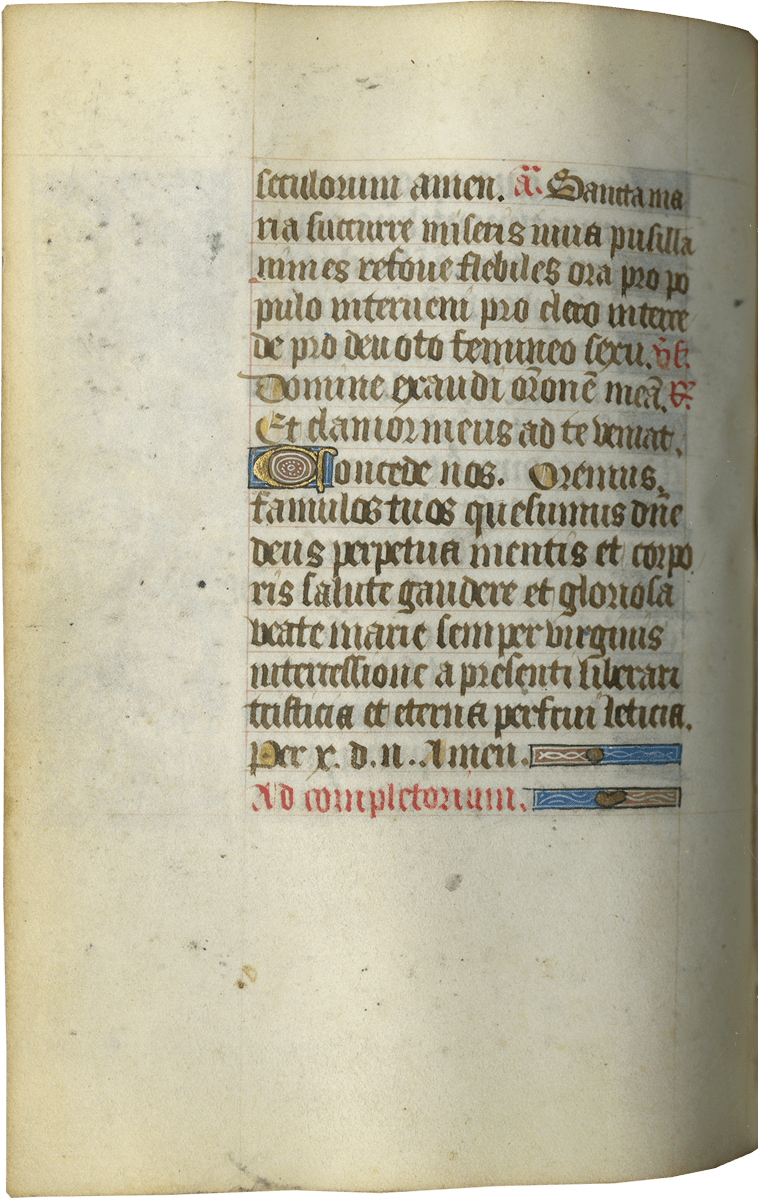 seculorum amen. an̄. Sancta ma
ria succurre miseris iuua pusilla
nimes refoue flebiles ora pro po
pulo interueni pro clero interce
de pro deuoto femineo sexu. v̄s.
Domine exaudi or̄onē meā. R̄.
Et clamor meus ad te veniat.
Concede nos. Oremus.
famulos tuos quesumus dn̄e
deus perpetua mentis et corpo
ris salute gaudere et gloriosa
beate marie semper virginis
intercessione a presenti liberari
tristicia et eterna perfrui leticia.
Per x. d. n. Amen.
Ad completorium.